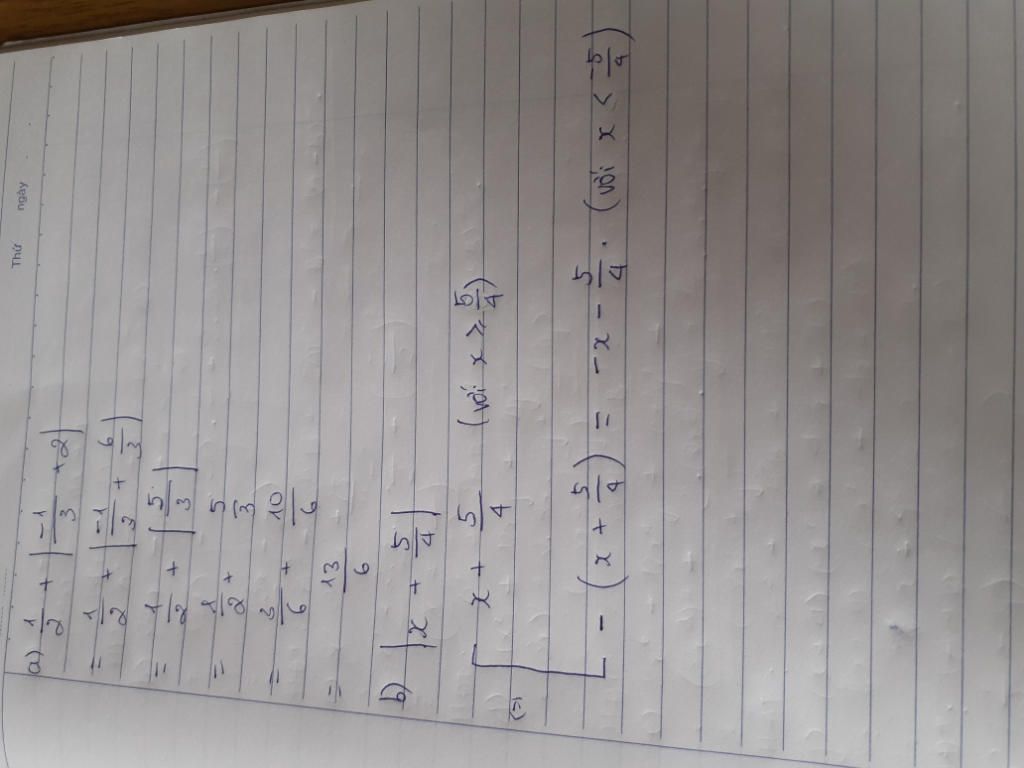 Thứ ngày
a) 1/2 + |-1/3 + 2|
= 1/2 + |-1/3 + 6/3|
= 1/2 + |5/3|
= 1/2 + 5/3
= 3/6 + 10/6
= 13/6
b) |x + 5/4|
<=> [ x + 5/4 (với x ≥ -5/4)
- (x + 5/4) = -x - 5/4 . (với x < -5/4)